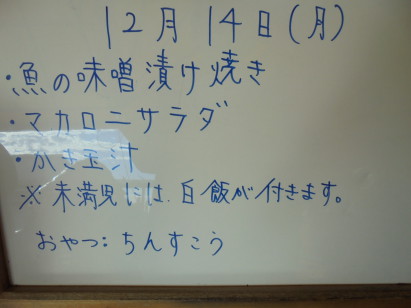 12月14日(月)
・魚の味噌漬け焼き
・マカロニサラダ
・かき玉汁
※未満児には、白飯が付きます。
おやつ:ちんすこう